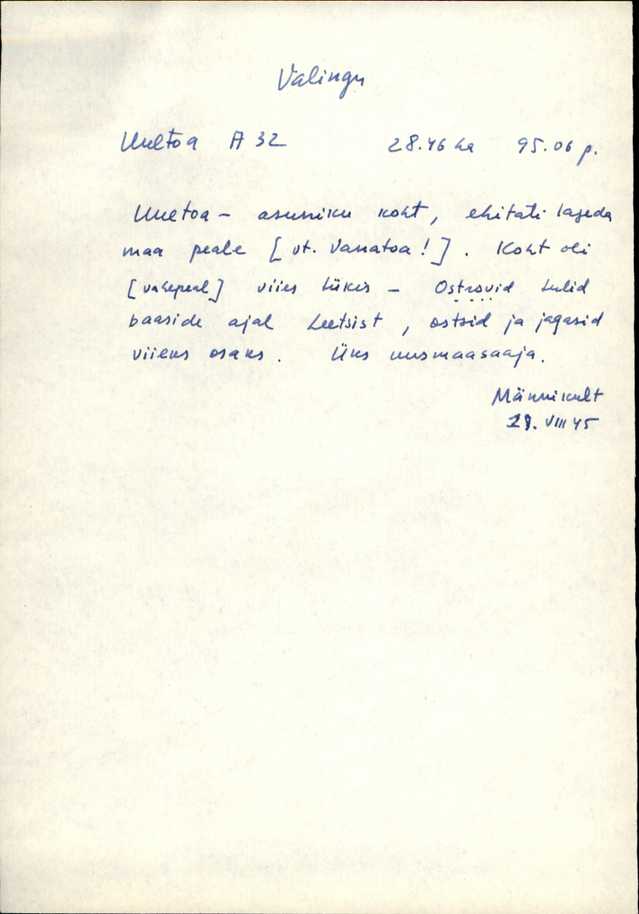 Valingu
Uuetoa A 32 28.46 ha 95.06 p.
Uuetoa – asuniku koht, ehitati lageda
maa peale [vt. Vanatoa!]. Koht oli
[vahepeal] viies tükis – Ostrovid tulid
baaside ajal Leetsist, ostsid ja jagasid
viieks osaks. Üks uusmaasaaja.
Männikult
28. VIII 45